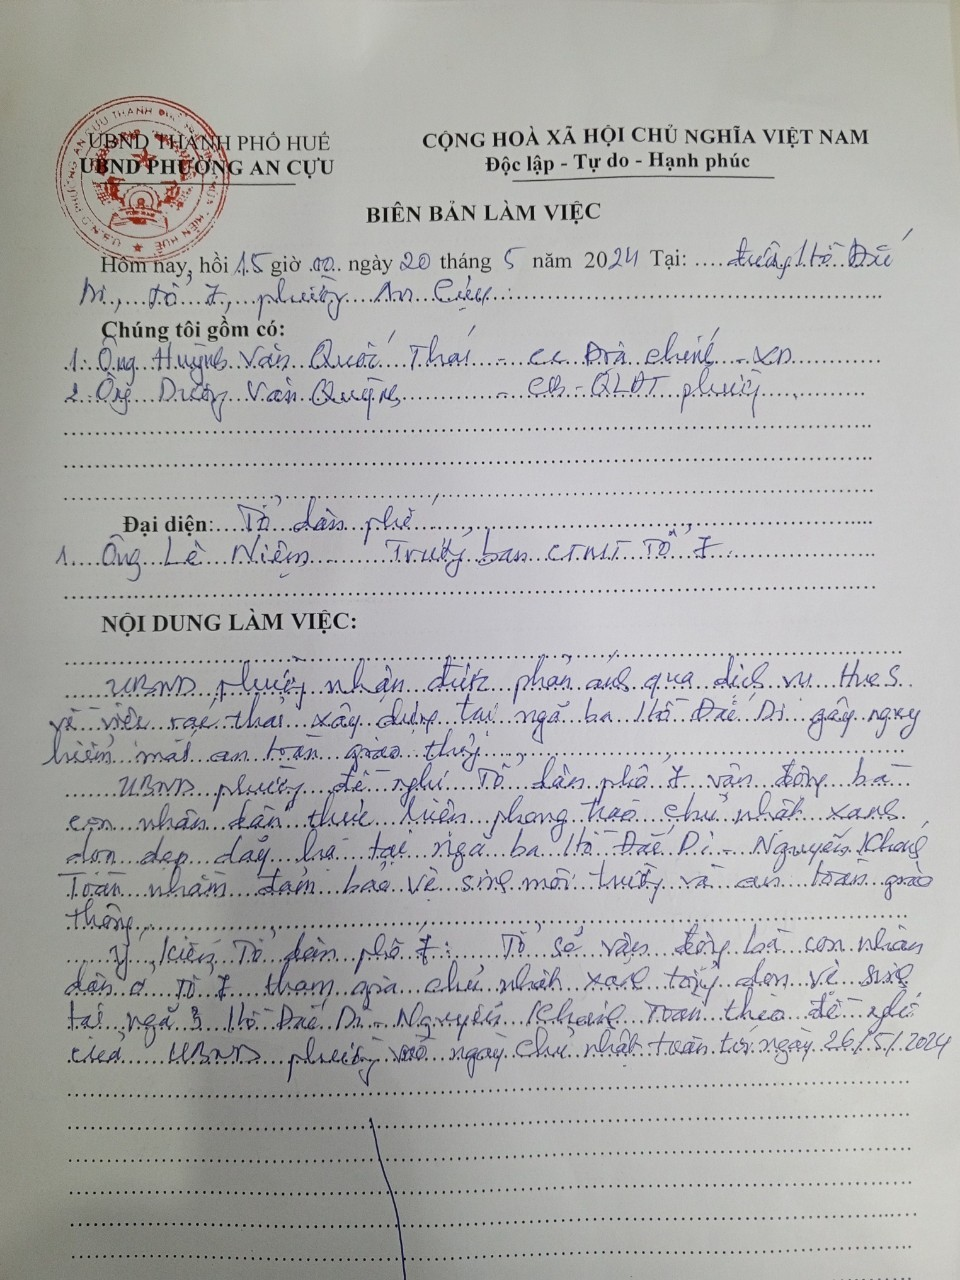 UBND THÀNH PHỐ HUẾ
UBND PHƯỜNG AN CỰU
CỘNG HOÀ XÃ HỘI CHỦ NGHĨA VIỆT NAM
Độc lập - Tự do - Hạnh phúc
BIÊN BẢN LÀM VIỆC
Hôm nay, hồi 15 giờ 00 ngày 20 tháng 5 năm 2024 Tại: đường Hồ Đắc
Di, Tổ 7, phường An Cựu
Chúng tôi gồm có:
1. Ông Huỳnh Văn Quốc Thái - CC Địa chính - XD
2. Ông Dương Văn Quặng - CB - QLĐT phường
Đại diện: Tổ dân phố
1. Ông Lê Niệm Trưởng ban CTMT Tổ 7
NỘI DUNG LÀM VIỆC:
UBND phường nhận được phản ánh qua dịch vụ HueS
về việc rác thải xây dựng tại ngã ba Hồ Đắc Di gây nguy
hiểm mất an toàn giao thông
UBND phường đề nghị Tổ dân phố 7 vận động bà
con nhân dân thực hiện phong trào chủ nhật xanh
dọn dẹp tại ngã ba Hồ Đắc Di - Nguyễn Khánh
Toàn nhằm đảm bảo vệ sinh môi trường và an toàn giao
thông
Ý kiến Tổ dân phố 7: Tổ sẽ vận động bà con nhân
dân ở Tổ 7 tham gia chủ nhật xanh tổng dọn vệ sinh
tại ngã 3 Hồ Đắc Di - Nguyễn Khánh Toàn theo đề nghị
của UBND phường vào ngày chủ nhật tuần tới ngày 26/5/2024